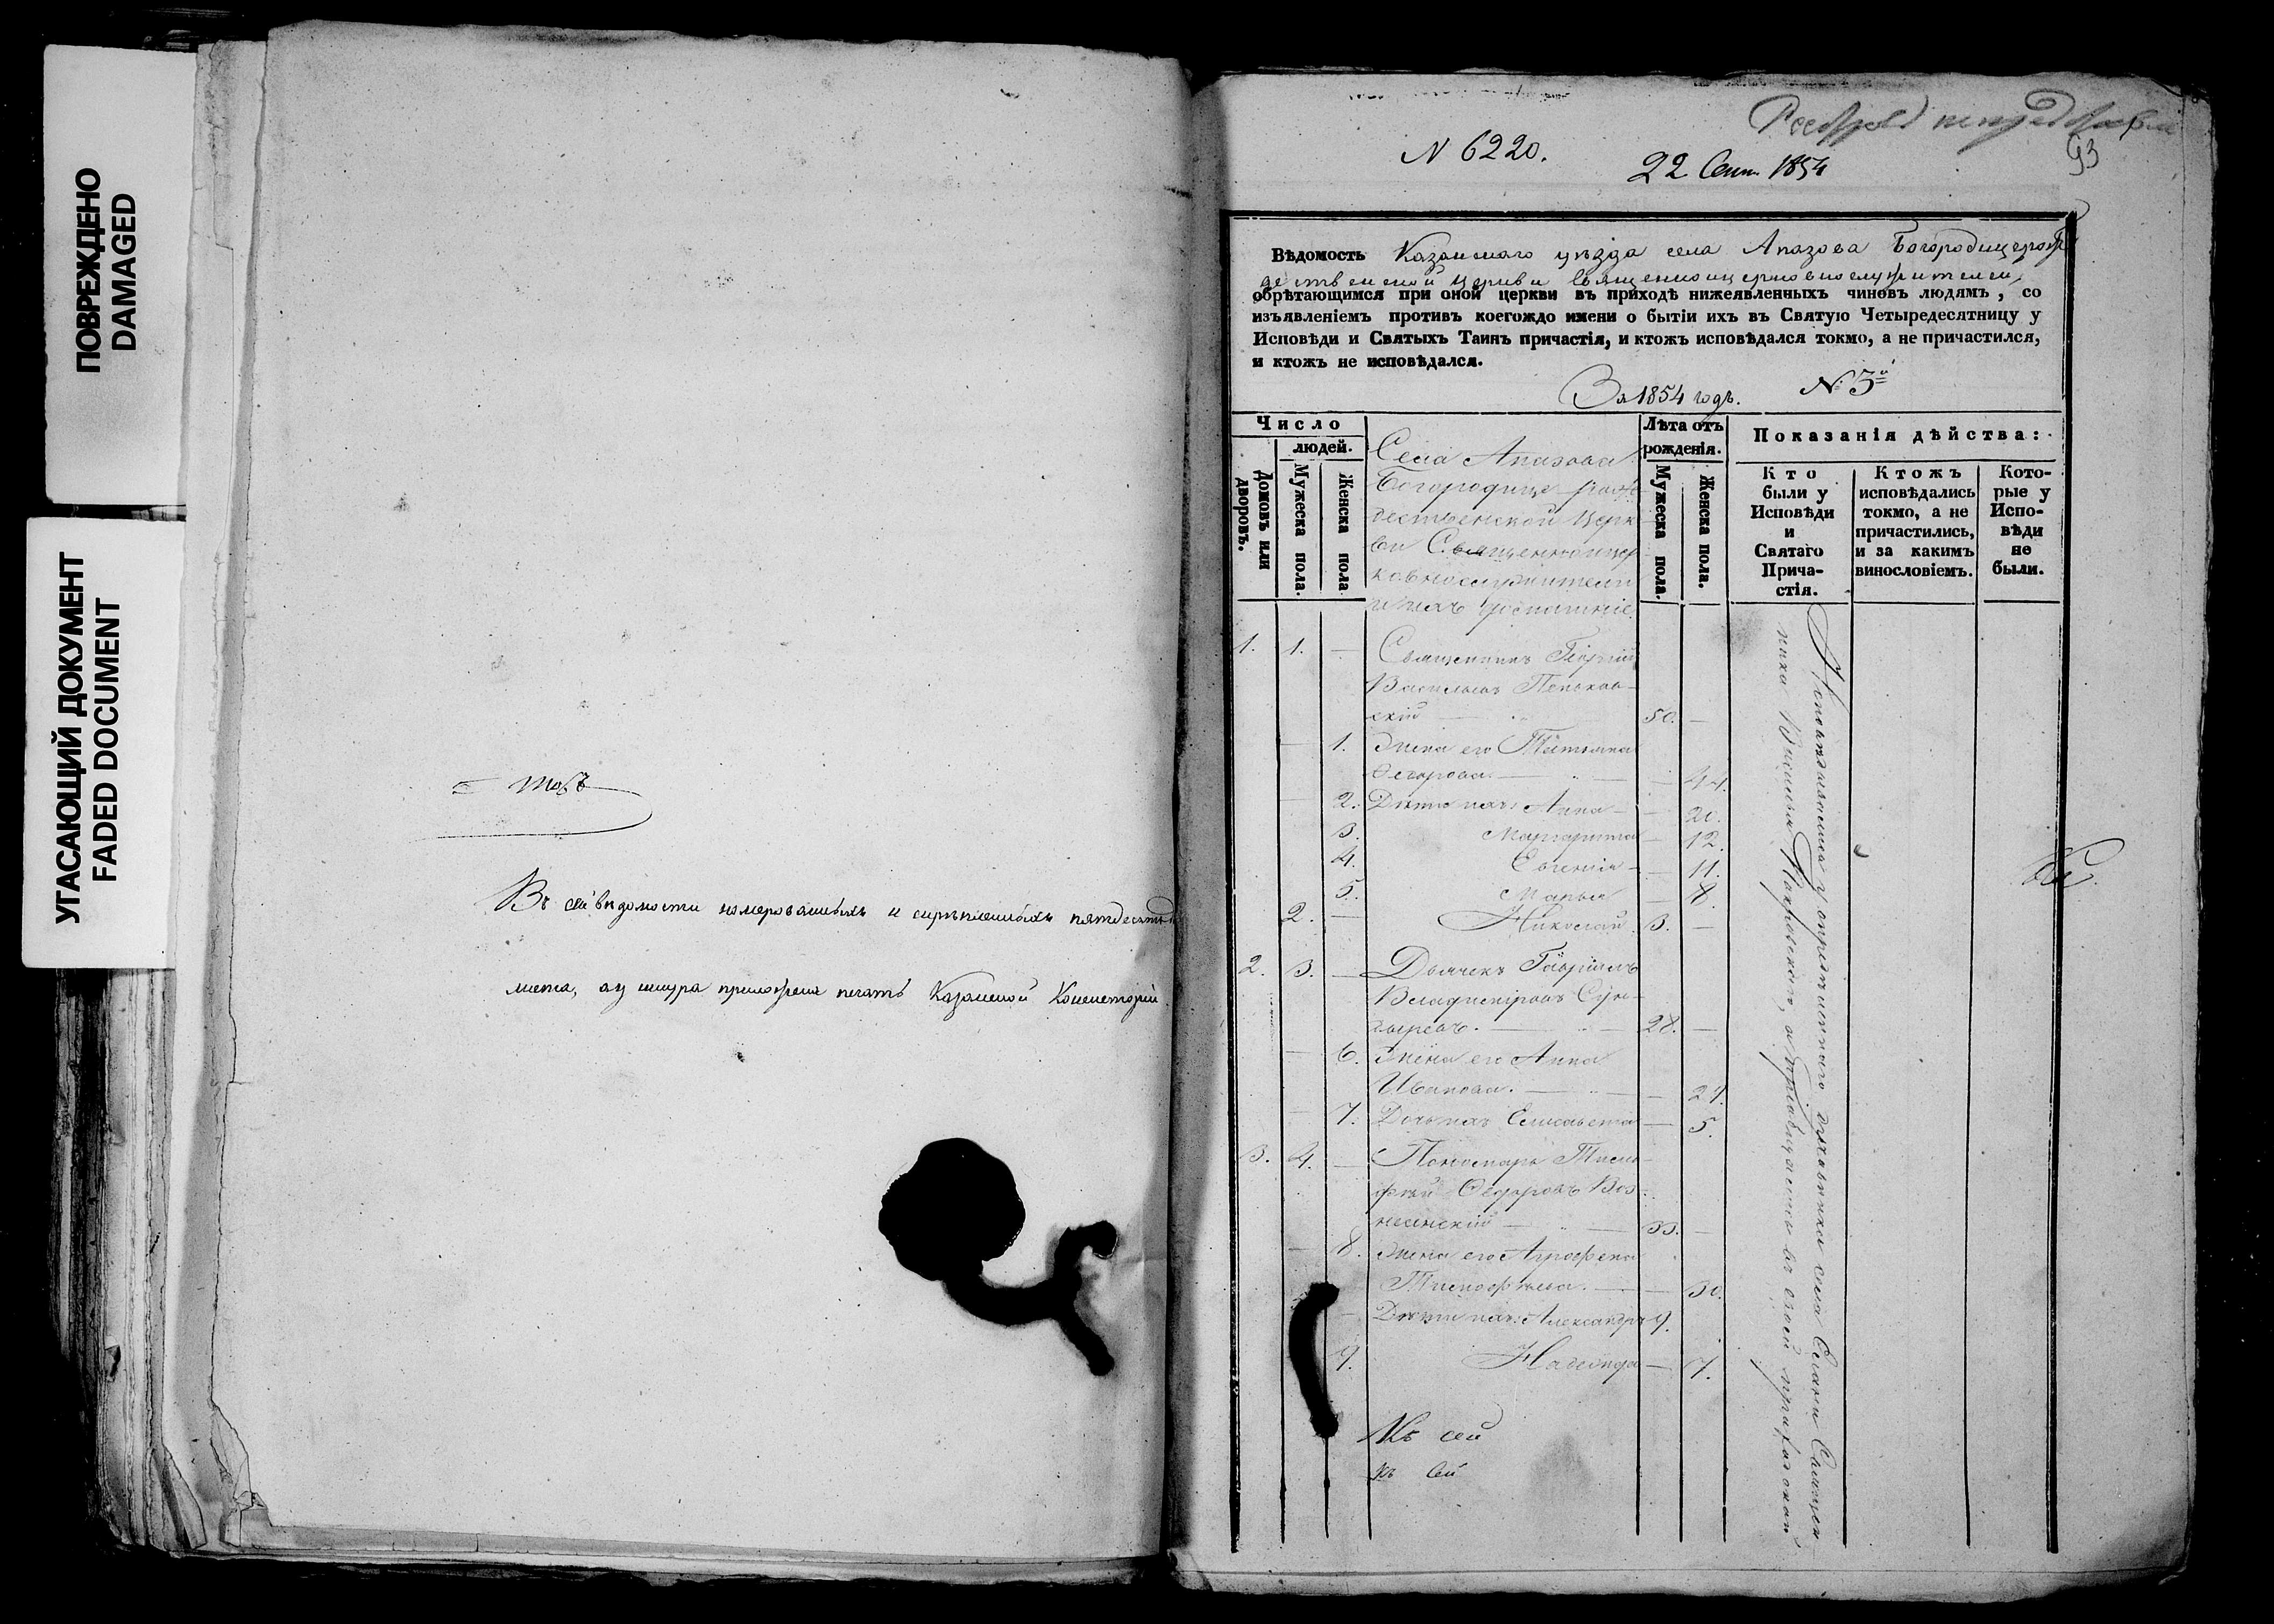 ПОВРЕЖДЕНО
DAMAGED
УГАСАЮЩИЙ ДОКУМЕНТ
FADED DOCUMENT
Въ сей вѣдомости номерованныхъ и скрѣпленныхъ пятдесятъ
листа, а у шнура приложена печать Казанской Консисторіи
N 6220.
22 Сент. 1854
93
Вѣдомость Казанскаго уѣзда села Апазова Богородицерож
дественской церкви священноицерковнослужителей,
обрѣтающимся при оной церкви въ приходѣ нижеявленныхъ чиновъ людямъ, со
изъявленіемъ противъ коегождо имени о бытіи ихъ въ Святую Четыредесятницу у
Исповѣди и Святыхъ Таинъ причастія, и ктожъ исповѣдался токмо, а не причастился,
и ктожъ не исповѣдался.
За 1854 годъ. № 3й
Число
людей.
Домовъ или дворовъ.
Мужеска пола.
Женска пола
Села Апазова
Богородице-рож
дественской Церк
ви Священноицер
ковнослужители
и ихъ домашніе
Лѣта отъ
рожденія.
Мужеска пола.
Женска пола.
Показанія дѣйства:
Кто
были у
Исповѣди
и
Святаго
Прича-
стія.
Ктожъ
исповѣдались
токмо, а не
причастились,
и за какимъ
винословіемъ.
Кото-
рые у
Испо-
вѣди
не
были.
1. 1. — Священникъ Георгій
Васильевъ Пеньков-
скій — 50. —
— 1. Жена его Татьяна
Егорова. — — 44.
— 2. Дѣти ихъ: Анна — — 20.
3. Маргарита — 12.
4. Евгенія — — 11.
5. Марья — 8.
2. — Николай 3. —
2. 3. — Дьячекъ Гавріилъ
Владиміровъ
28. —
— 6. Жена его Анна
Иванова. — — 24.
— 7. Дочь ихъ Елисавета — 5.
3. 4. — Пономарь Тимо-
фей Федоровъ Воз-
несенскій — 33. —
— 8. Жена его Агрофена
Тимофѣева. — — 30.
— Дѣти ихъ: Александръ 9.
9. Надежда — 7.
Къ сей
къ сей
Исповѣдывались у опредѣленнаго духовника села Священ-
ника Василья и пріобщались въ своей приходской